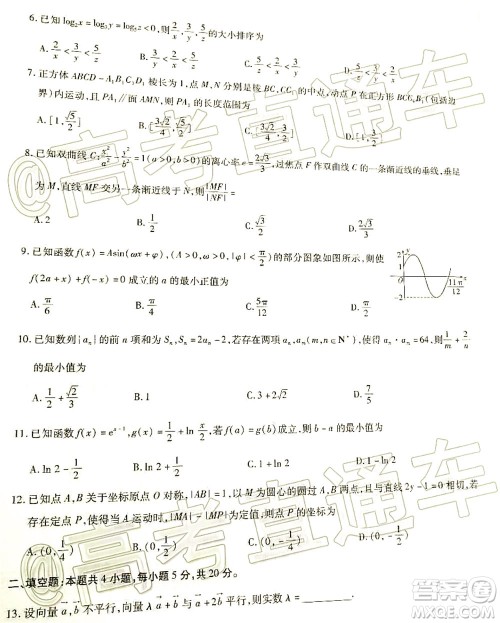 6.已知log₂x=log₃y=log₅z<0,则2/x、3/y、5/z的大小排序为
A.2/x<3/y<5/z B.3/y<2/x<5/z C.5/z<2/x<3/y D.5/z<3/y<2/x
7.正方体ABCD-A₁B₁C₁D₁棱长为1,点M,N分别是棱BC,CC₁的中点,动点P在正方形BCC₁B₁(包括边
界)内运动,且PA₁∥面AMN,则PA₁的长度范围为
A.[1,√5/2] B.[3√2/4,√5/2] C.[3√2/4,3/2] D.[1,3/2]
8.已知双曲线C:x²/a²-y²/b²=1(a>0,b>0)的离心率e=2√3/3,过焦点F作双曲线C的一条渐近线的垂线,垂足
为M,直线MF交另一条渐近线于N,则|MF|/|NF|=
A.2 B.1/2 C.√3/2 D.2√3/3
9.已知函数f(x)=Asin(ωx+φ),(A>0,ω>0,|φ|<π/2)的部分图象如图所示,则使
f(2a+x)+f(-x)=0成立的a的最小正值为
A.π/6 B.π/4 C.5π/12 D.π/2
y
2
O
x
-2
11π/12
10.已知数列{aₙ}的前n项和为Sₙ,Sₙ=2aₙ-2,若存在两项aₘ,aₙ(m,n∈N*),使得aₘ·aₙ=64,则1/m+2/n
的最小值为
A.1/2+√2/3 B.1 C.3+2√2 D.7/5
11.已知函数f(x)=eˣ⁻¹,g(x)=1/2+ln x/2,若f(a)=g(b)成立,则b-a的最小值为
A.1/2-ln2 B.1/2+ln2 C.1+ln2 D.1-ln2
12.已知点A,B关于坐标原点O对称,|AB|=1,以M为圆心的圆过A,B两点,且与直线2y-1=0相切,若
存在定点P,使得当A运动时,|MA|-|MP|为定值,则点P的坐标为
A.(0,1/4) B.(0,1/2) C.(0,-1/4) D.(0,-1/2)
二、填空题:本题共4小题,每小题5分,共20分。
13.设向量a,b不平行,向量λa+b与a+2b平行,则实数λ=________.
@高考直通车
@高考直通车